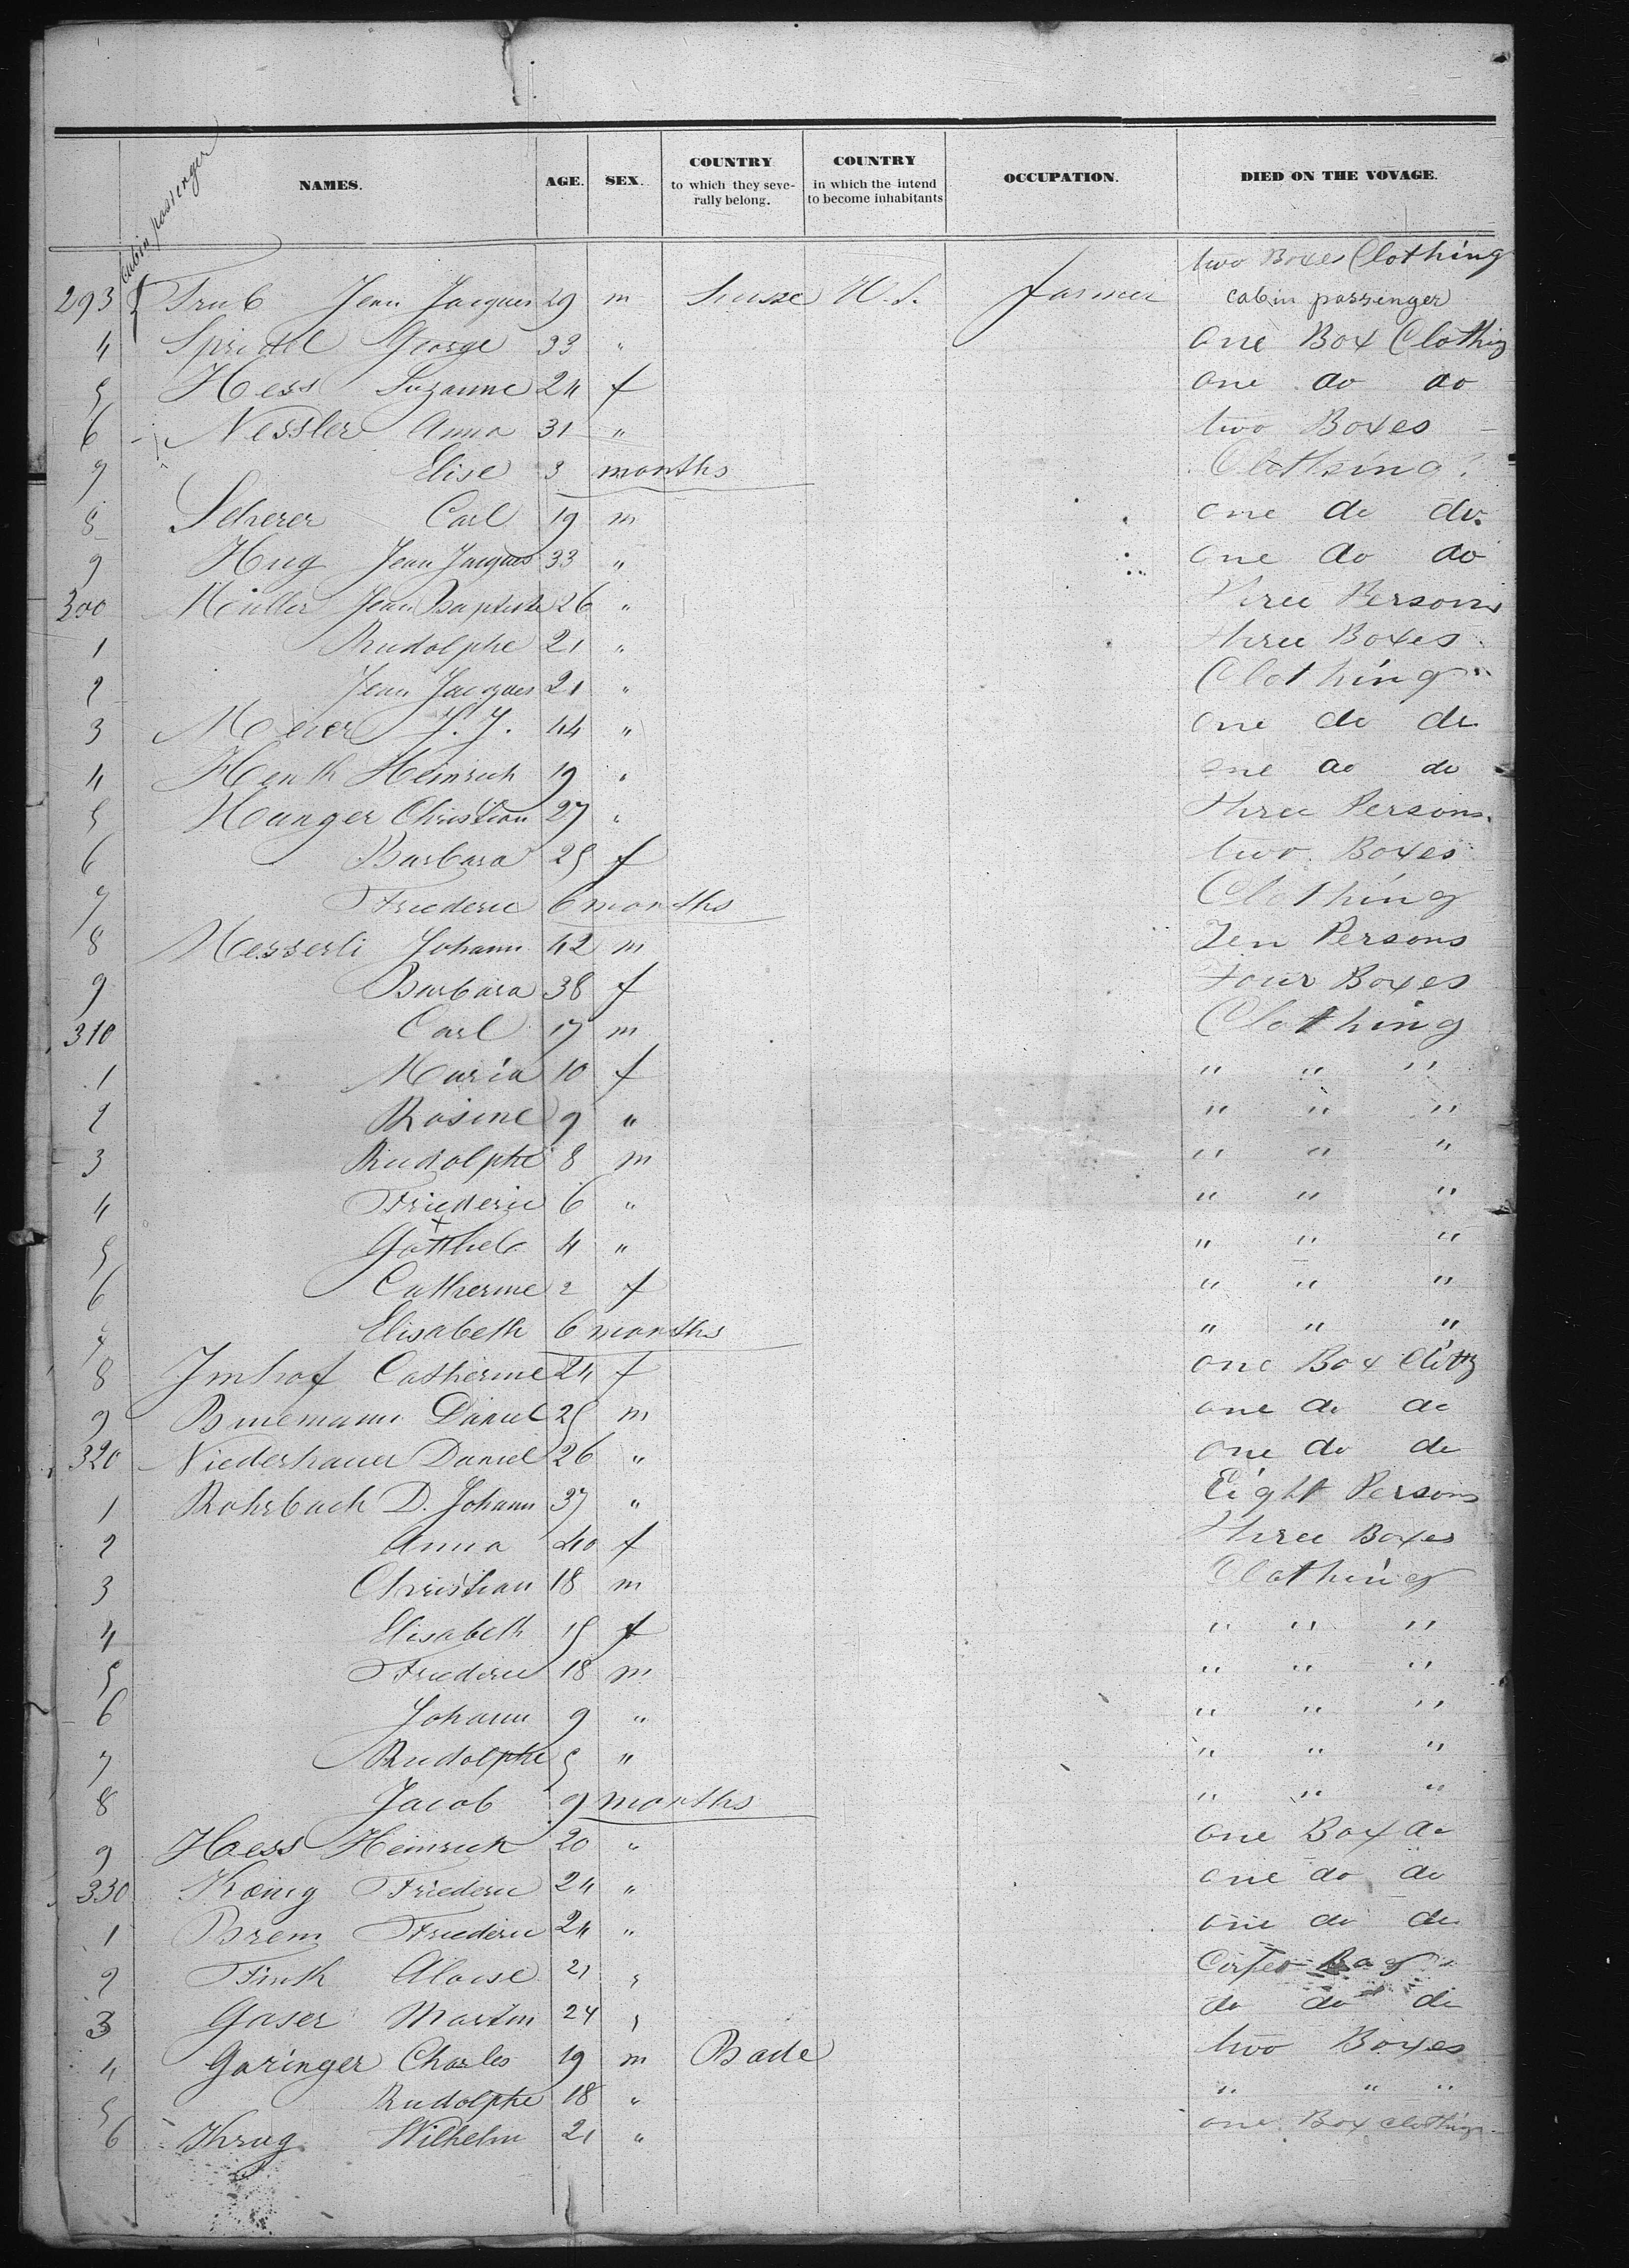 cabin passenger
NAMES. AGE. SEX. COUNTRY to which they severally belong. COUNTRY in which the intend to become inhabitants OCCUPATION. DIED ON THE VOYAGE.
two Boxes Clothing
293 Trub Jean Jacques 29 m Suisse U.S. farmer cabin passenger
4 Spridel George 33 " one Box Clothing
5 Hess Suzanne 24 f one do do
6 Nessler Anna 31 " two Boxes
7 Elise 3 months Clothing
8 Scherer Carl 19 m one do do
9 Hug Jean Jacques 33 " one do do
300 Müller Jean Baptiste 26 " Three Persons
1 Rudolphe 21 " three Boxes
2 Jean Jacques 21 " Clothing
3 Meier J. J. 44 " one do do
4 Henth Heinrich 19 " one do do
5 Hunger Christian 27 " three Persons
6 Barbara 25 f two Boxes
7 Friederic 6 months Clothing
8 Messerli Johann 42 m Ten Persons
9 Barbara 38 f Four Boxes
310 Carl 17 m Clothing
1 Maria 10 f " " "
2 Rosine 9 " " " "
3 Rudolphe 8 m " " "
4 Friederic 6 " " " "
5 Gottlieb 4 " " " "
6 Catherine 2 f " " "
7 Elisabeth 6 months " " "
8 Imhof Catherine 24 f one Box Cloth
9 Daniel 25 m one do do
320 Niederhauer Daniel 26 " one do do
1 Rohrbach D. Johann 37 " Eight Persons
2 Anna 40 f Three Boxes
3 Christian 18 m Clothing
4 Elisabeth 15 f " " "
5 Friederic 18 m " " "
6 Johann 9 " " " "
7 Rudolphe 5 " " " "
8 Jacob 9 months " " "
9 Haess Heinrich 20 " one Box do
330 Kœnig Friederic 24 " one do do
1 Brem Friederic 24 " one do do
2 Finth Aloise 21 " Carpet Bag
3 Gaser Martin 24 " do do do
4 Garinger Charles 19 m Bade two Boxes
5 Rudolphe 18 " " " "
6 Khrug Wilhelm 21 " one Box clothing